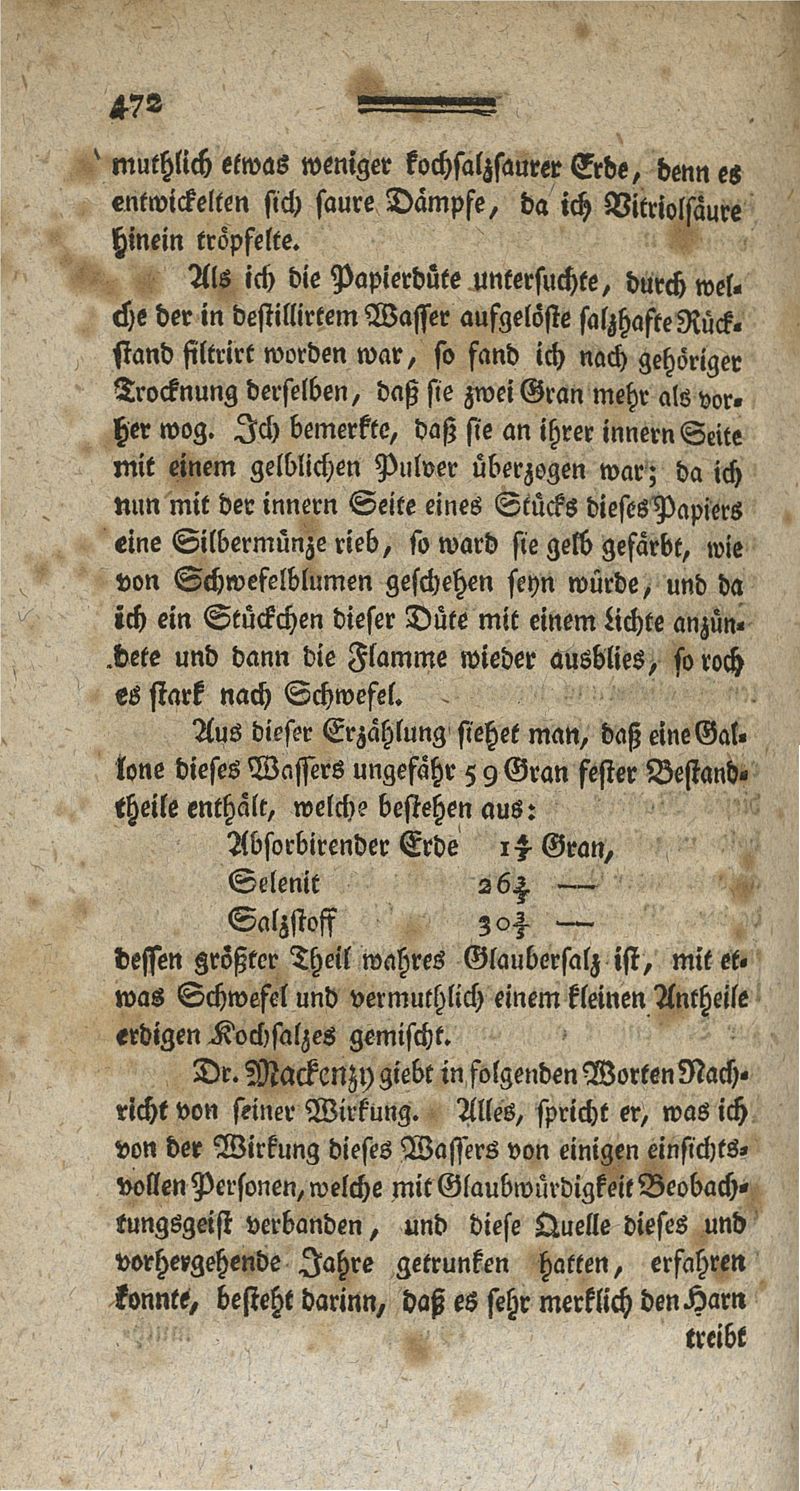 472
muthlich etwas weniger kochsalzsaurer Erde, denn es
entwickelten sich saure Dämpfe, da ich Vitriolsäure
hinein tröpfelte.
Als ich die Papierdüte untersuchte, durch wel-
che der in destillirtem Wasser aufgelöste salzhafte Rück-
stand filtrirt worden war, so fand ich nach gehöriger
Trocknung derselben, daß sie zwei Gran mehr als vor-
her wog. Ich bemerkte, daß sie an ihrer innern Seite
mit einem gelblichen Pulver überzogen war; da ich
nun mit der innern Seite eines Stücks dieses Papiers
eine Silbermünze rieb, so ward sie gelb gefärbt, wie
von Schwefelblumen geschehen seyn würde, und da
ich ein Stückchen dieser Düte mit einem Lichte anzün-
dete und dann die Flamme wieder ausblies, so roch
es stark nach Schwefel.
Aus dieser Erzählung siehet man, daß eine Gal-
lone dieses Wassers ungefähr 59 Gran fester Bestand-
theile enthält, welche bestehen aus:
Absorbirender Erde 1 Gran,
Selenit 26 —
Salzstoff 30 —
dessen größter Theil wahres Glaubersalz ist, mit et-
was Schwefel und vermuthlich einem kleinen Antheile
erdigen Kochsalzes gemischt.
Dr. Mackenzy giebt in folgenden Worten Nach-
richt von seiner Wirkung. Alles, spricht er, was ich
von der Wirkung dieses Wassers von einigen einsichts-
vollen Personen, welche mit Glaubwürdigkeit Beobach-
tungsgeist verbanden, und diese Quelle dieses und
vorhergehende Jahre getrunken hatten, erfahren
konnte, besteht darinn, daß es sehr merklich den Harn
treibt